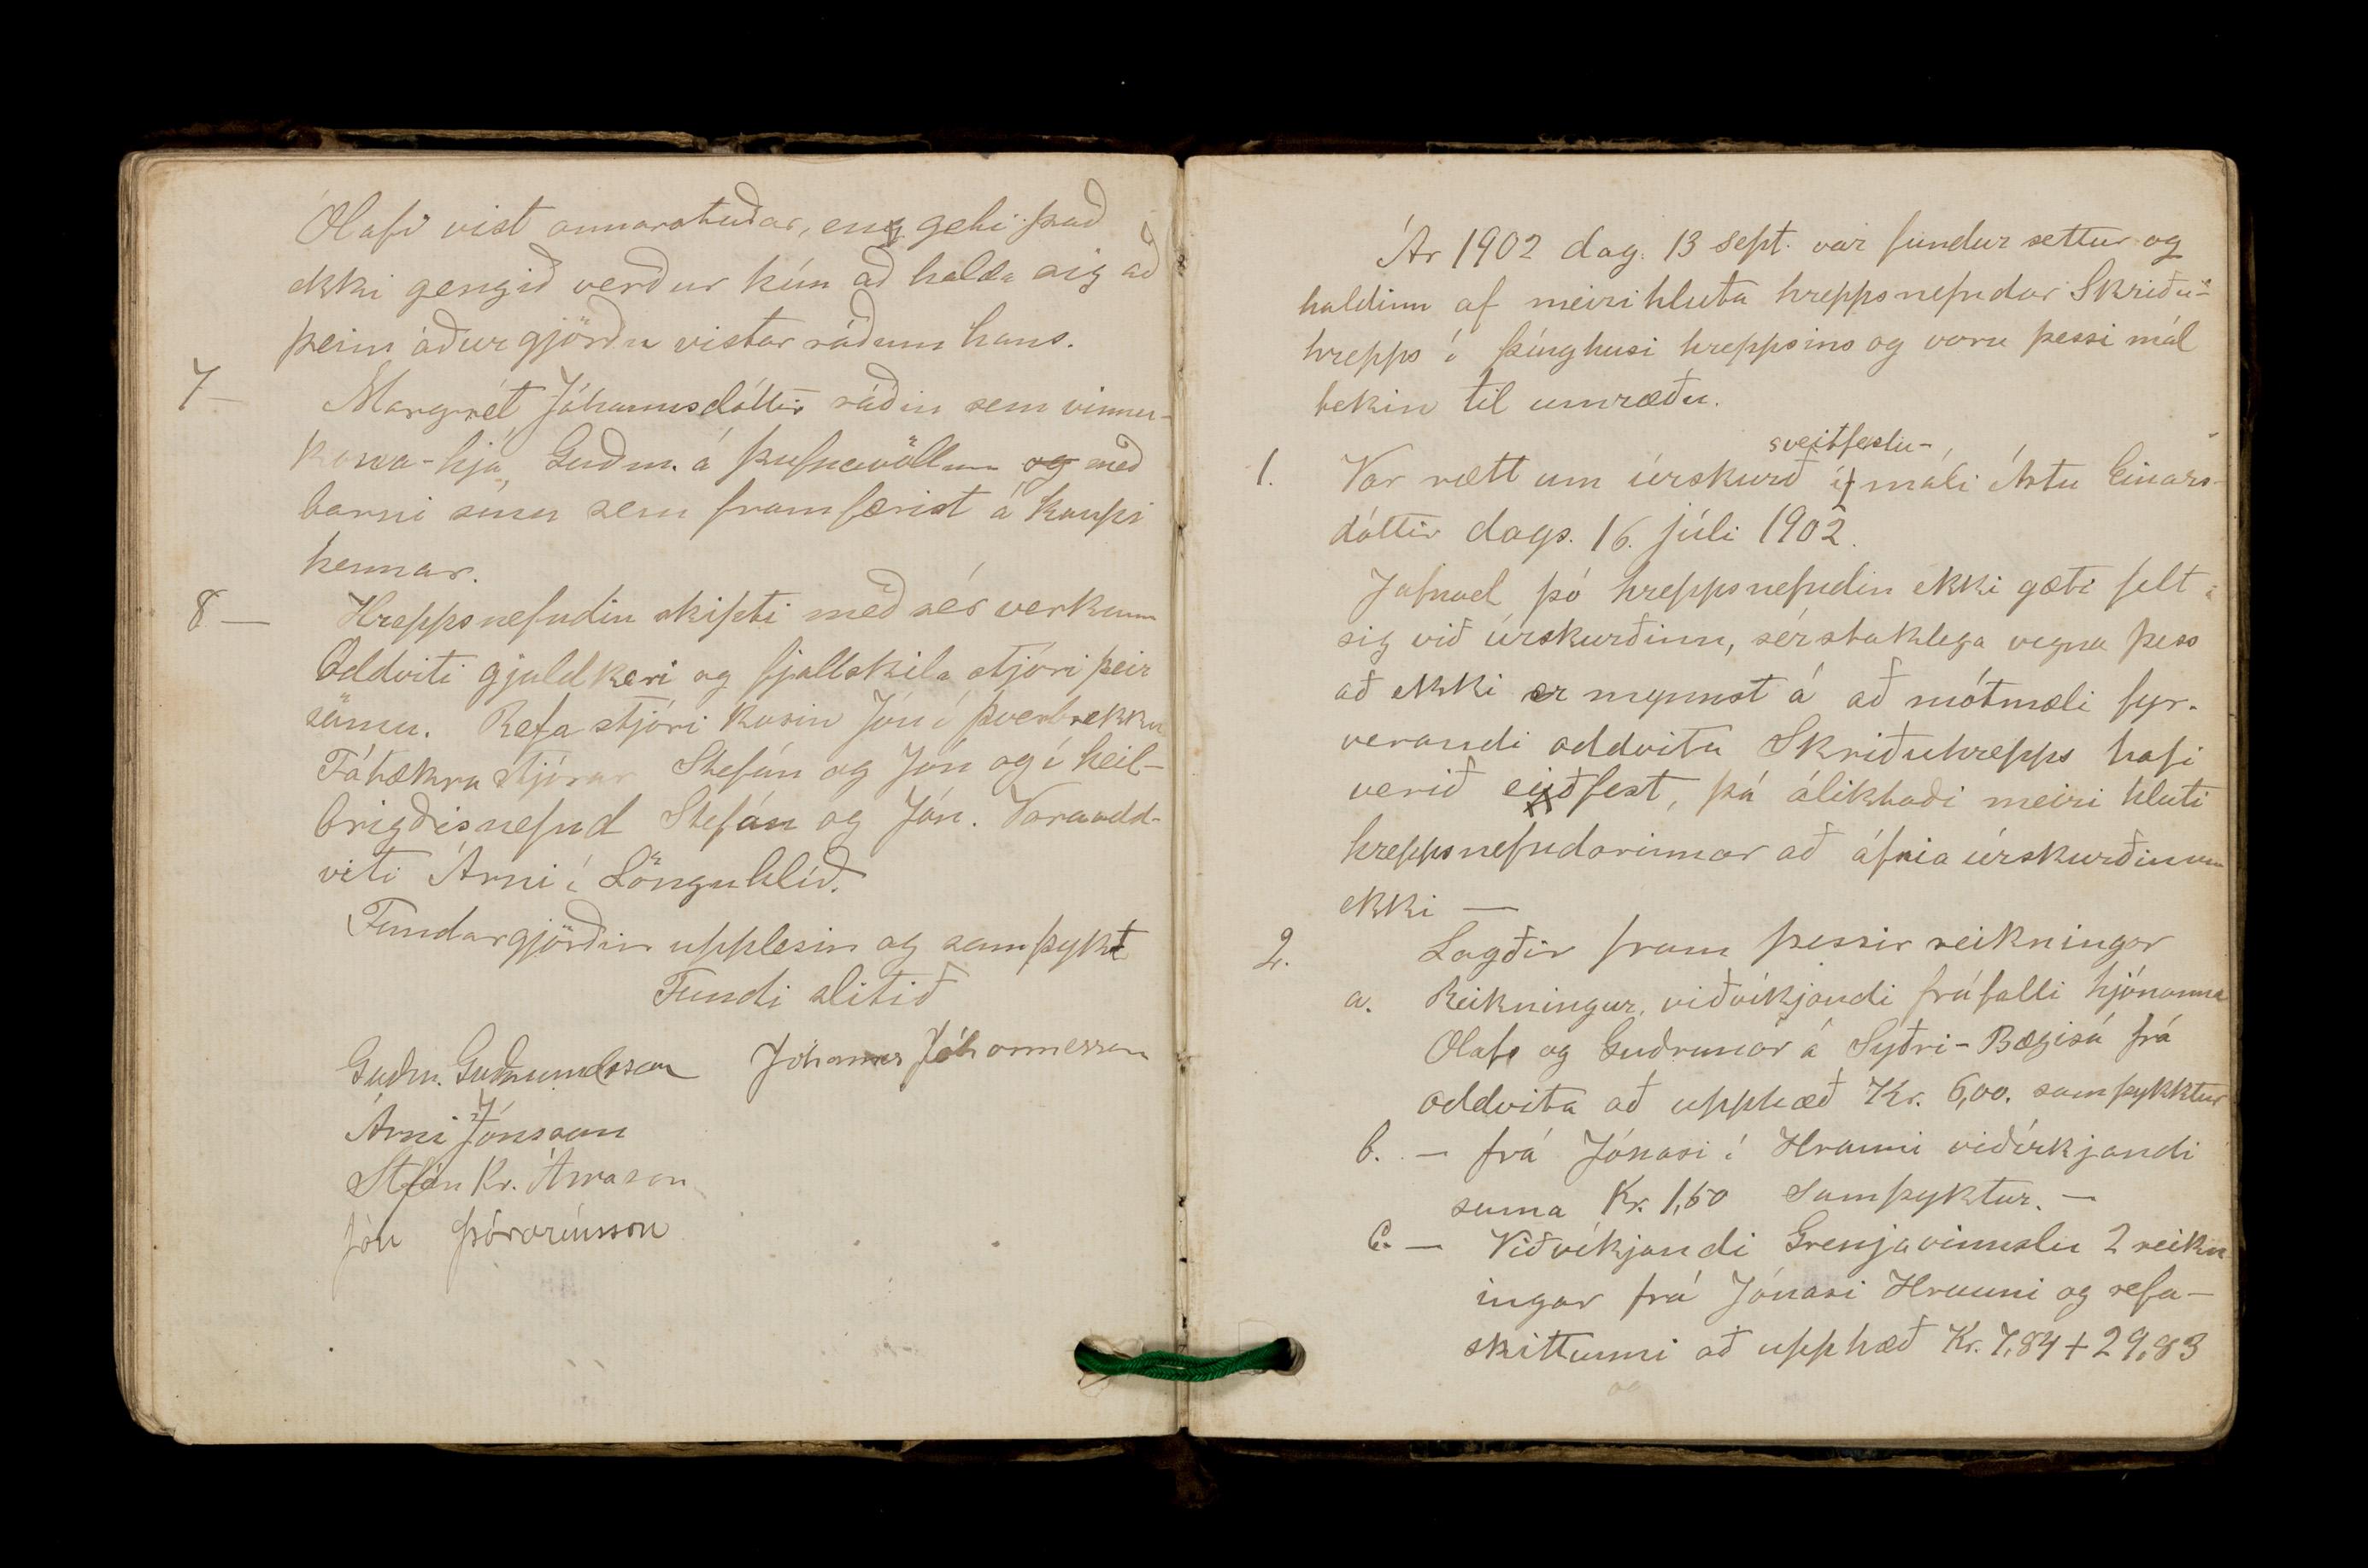 Ólafi vist annarstaðar, en geti það
ekki gengið verður hún að halda sig að
þeim áðurgjörðu vistar ráðum hans.
7 — Margrét Jóhannsdóttir ráðin sem vinnu-
kona - hjá Guðm. á Þúfnavöllum og með
barni sínu sem framfærist á kaupi
hennar.
8 — Hreppsnefndin skipti með sér verkum
Oddviti gjaldkeri og fjallskila stjóri þeir
sömu. Refa stjóri kosin Jón í Þverbrekku
Fátækra stjórar Stefán og Jón og í heil-
brigðisnefnd Stefán og Jón. Varaodd-
viti Árni í Lönguhlíð.
Fundargjörðin upplesin og samþykt
Fundi slitið
Guðm. Guðmundsson Jóhannes Jóhannesson
Árni Jónsson
Stefán Kr. Árnason
Jón Þórarinsson
Ár 1902 dag. 13 sept. var fundur settur og
haldinn af meirihluta hreppsnefndar Skriðu-
hrepps í þinghúsi hreppsins og voru þessi mál
tekin til umræðu.
sveitfestu-
1. Var rætt um úrskurð í máli Ástu Einars-
dóttir dags. 16. júli 1902.
Jafnvel þó hreppsnefndin ekki gæti felt
sig við úrskurðinn, sérstaklega vegna þess
að ekki er mynnst á að mótmæli fyr-
verandi oddvita Skriðuhrepps hafi
verið eiðfest, þá áliktaði meiri hluti
hreppsnefndarinnar að áfría úrskurðinum
ekki —
2. Lagðir fram þessir reikningar
a. Reikningur viðvíkjandi fráfalli hjónanna
Olafs og Guðrúnar á Syðri-Bægisá frá
oddvita að upphæð Kr. 6,00. samþykktur
b. — frá Jónasi í Hrauni viðvíkjandi
sama Kr. 1,50 Samþyktur. —
C. — Viðvíkjandi Grenjavinnslu 2 reikn
ingar frá Jónasi Hrauni og refa-
skittunni að upphæð Kr. 7,84 + 29,83
og